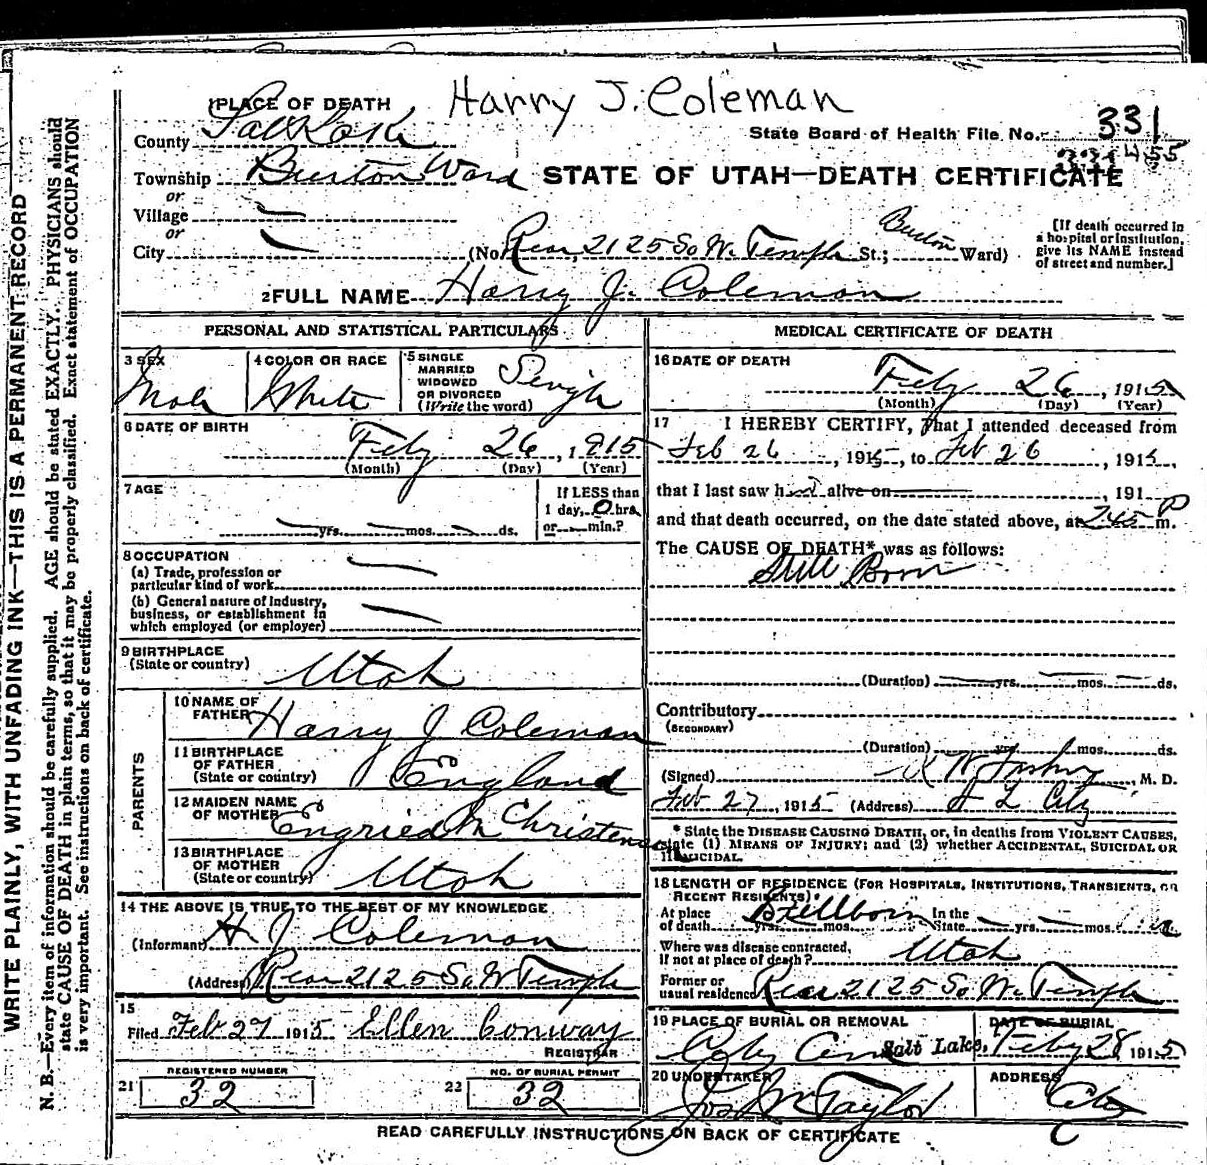 Harry J. Coleman
1 PLACE OF DEATH
County Salt Lake
State Board of Health File No. 331
Township Burton Ward
STATE OF UTAH—DEATH CERTIFICATE
or
Village —
or
City —
(No. Rear 2125 So W. Temple St.; Burton Ward)
[If death occurred in a hospital or institution, give its NAME instead of street and number.]
2 FULL NAME Harry J. Coleman
PERSONAL AND STATISTICAL PARTICULARS
3 SEX Male
4 COLOR OR RACE White
5 SINGLE MARRIED WIDOWED OR DIVORCED (Write the word) Single
6 DATE OF BIRTH
Feby 26, 1915
(Month) (Day) (Year)
7 AGE
— yrs. — mos. — ds.
If LESS than 1 day, 0 hrs. or — min.?
8 OCCUPATION
(a) Trade, profession or particular kind of work —
(b) General nature of industry, business, or establishment in which employed (or employer) —
9 BIRTHPLACE
(State or country) Utah
PARENTS
10 NAME OF FATHER Harry J Coleman
11 BIRTHPLACE OF FATHER (State or country) England
12 MAIDEN NAME OF MOTHER Engried M Christenson
13 BIRTHPLACE OF MOTHER (State or country) Utah
14 THE ABOVE IS TRUE TO THE BEST OF MY KNOWLEDGE
(Informant) H. J. Coleman
(Address) Rear 2125 So W Temple
15
Filed Feb 27 1915 Ellen Conway
REGISTRAR
REGISTERED NUMBER
21 32
NO. OF BURIAL PERMIT
22 32
MEDICAL CERTIFICATE OF DEATH
16 DATE OF DEATH
Feby 26, 1915
(Month) (Day) (Year)
17 I HEREBY CERTIFY, That I attended deceased from
Feb 26, 1915, to Feb 26, 1915,
that I last saw h alive on, 191
and that death occurred, on the date stated above, at 2:45 P m.
The CAUSE OF DEATH* was as follows:
Still Born
(Duration) — yrs. — mos. — ds.
Contributory
(SECONDARY)
(Duration) yrs. mos. ds.
(Signed), M. D.
Feb 27, 1915 (Address) S L City
* State the DISEASE CAUSING DEATH, or, in deaths from VIOLENT CAUSES, state (1) MEANS OF INJURY; and (2) whether ACCIDENTAL, SUICIDAL OR HOMICIDAL.
18 LENGTH OF RESIDENCE (FOR HOSPITALS, INSTITUTIONS, TRANSIENTS, OR RECENT RESIDENTS)
At place of death Stillborn yrs. mos. In the State — yrs. — mos.
Where was disease contracted, If not at place of death? Utah
Former or usual residence Rear 2125 So W. Temple
19 PLACE OF BURIAL OR REMOVAL
City Cem Salt Lake,
DATE OF BURIAL
Feby 28 1915
20 UNDERTAKER
Jos Wm Taylor
ADDRESS
City
READ CAREFULLY INSTRUCTIONS ON BACK OF CERTIFICATE
WRITE PLAINLY, WITH UNFADING INK—THIS IS A PERMANENT RECORD
N. B.—Every item of information should be carefully supplied. AGE should be stated EXACTLY. PHYSICIANS should
state CAUSE OF DEATH in plain terms, so that it may be properly classified. Exact statement of OCCUPATION
is very important. See instructions on back of certificate.